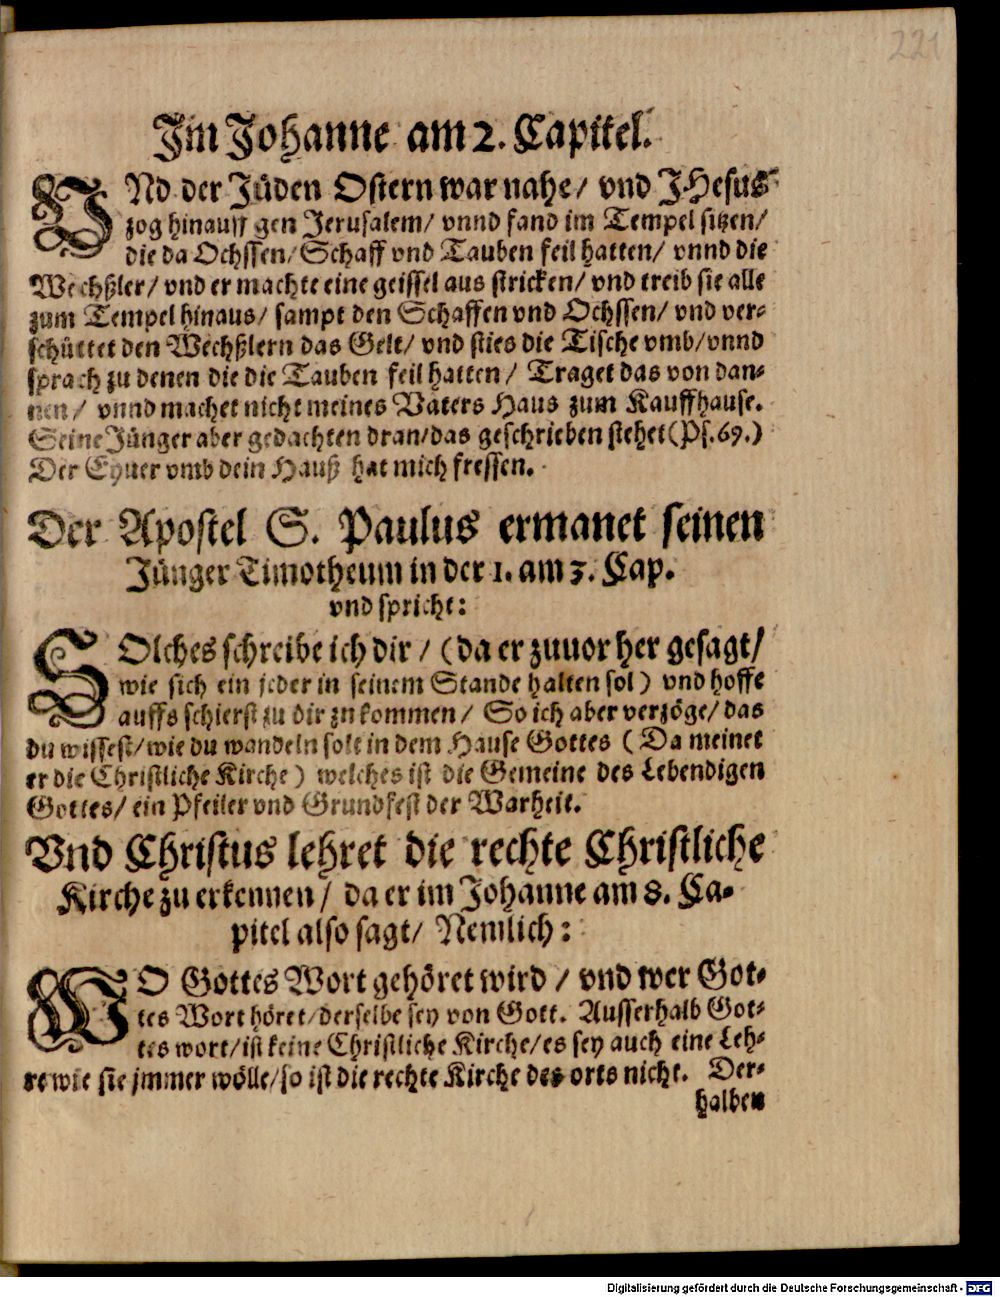 221
Im Johanne am 2. Capitel.
VNd der Jüden Ostern war nahe/ vnd JHesus
zog hinauff gen Jerusalem/ vnnd fand im Tempel sitzen/
die da Ochssen/ Schaff vnd Tauben feil hatten/ vnnd die
Wechßler/ vnd er machte eine geissel aus stricken/ vnd treib sie alle
zum Tempel hinaus/ sampt den Schaffen vnd Ochssen/ vnd ver-
schüttet den Wechßlern das Gelt/ vnd sties die Tische vmb/ vnnd
sprach zu denen die die Tauben feil hatten/ Traget das von dan-
nen/ vnnd machet nicht meines Vaters Haus zum Kauffhause.
Seine Jünger aber gedachten dran/ das geschrieben stehet (Ps. 69.)
Der Eyuer vmb dein Hauß hat mich fressen.
Der Apostel S. Paulus ermanet seinen
Jünger Timotheum in der 1. am 3. Cap.
vnd spricht:
SOlches schreibe ich dir/ (da er zuuor her gesagt/
wie sich ein jeder in seinem Stande halten sol) vnd hoffe
auffs schierst zu dir zu kommen/ So ich aber verzöge/ das
du wissest/ wie du wandeln solt in dem Hause Gottes (Da meinet
er die Christliche Kirche) welches ist die Gemeine des Lebendigen
Gottes/ ein Pfeiler vnd Grundfest der Warheit.
Vnd Christus lehret die rechte Christliche
Kirche zu erkennen/ da er im Johanne am 8. Ca-
pitel also sagt/ Nemlich:
WO Gottes Wort gehöret wird/ vnd wer Got-
tes Wort höret/ derselbe sey von Gott. Ausserhalb Got-
tes wort/ ist keine Christliche Kirche/ es sey auch eine Leh-
re wie sie jmmer wölle/ so ist die rechte Kirche des orts nicht. Der-
halben
Digitalisierung gefördert durch die Deutsche Forschungsgemeinschaft - DFG